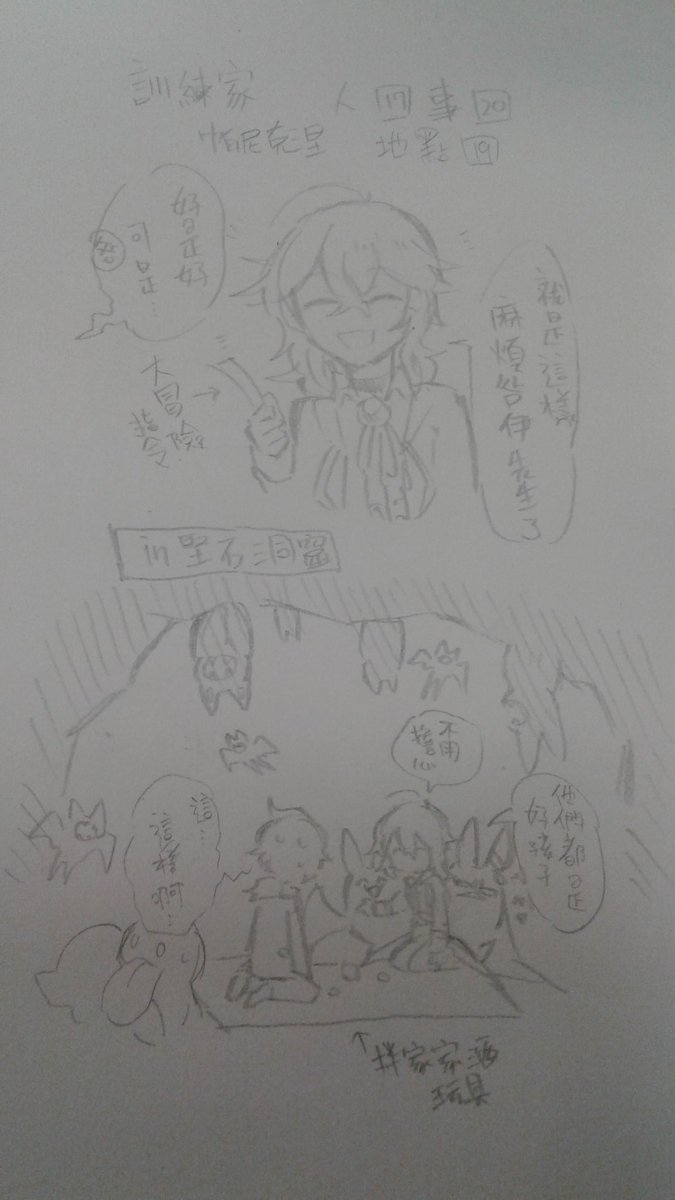 訓練家 人 17 事 20
帕尼克星 地點 19
好是好
可是…
就是這樣
麻煩咎伊先生了
咎
大冒險
指令
in 堅石洞窟
不用
擔心
他們都是
好孩子
這…
這樣啊…
↑拌家家酒
玩具